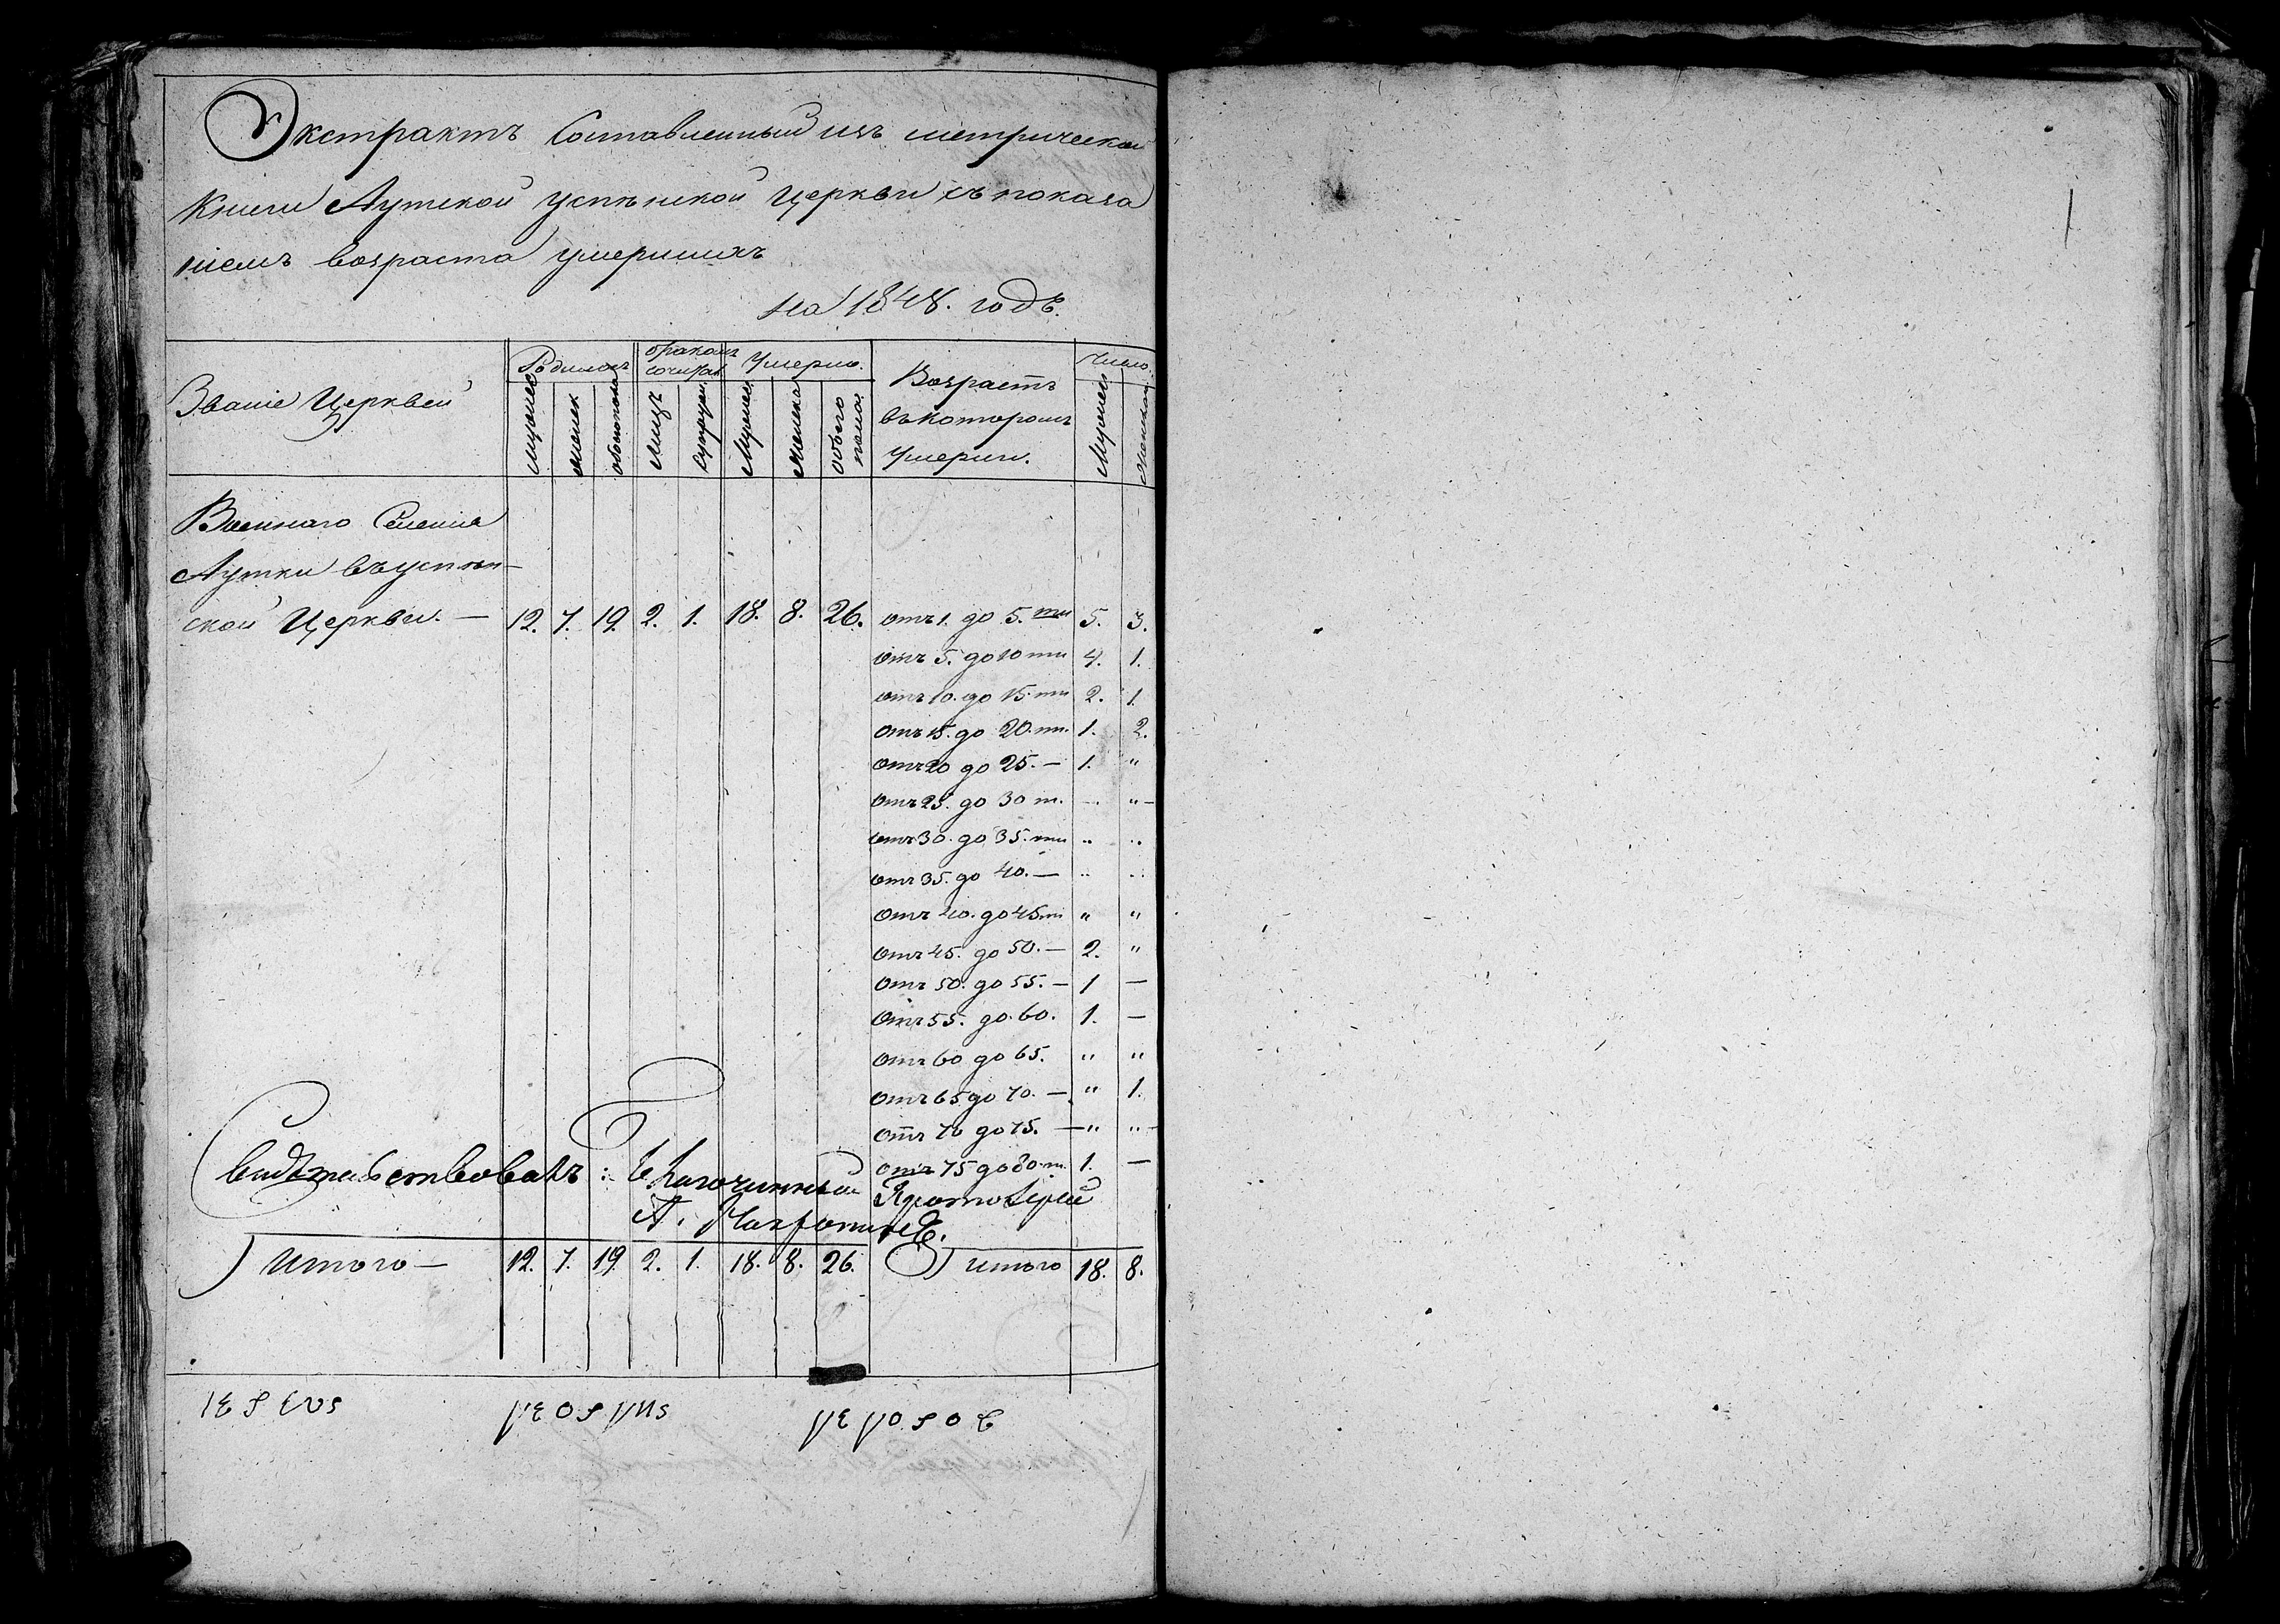 Экстрактъ Составленный изъ метрической
Книги Аутской успѣнской Церкви съ показа
ніемъ возраста умершихъ
на 1848. годъ.
Званіе Церквей
Родилось
бракомъ сочитал
Умерло.
Возрастъ въ которомъ Умерли.
Число.
Мужеск
Женск
обоегопола
Лицъ
Супруж
Мужеск
Женска
Обоего пола.
Мужеск
Женска
Военнаго Селенія
Аутки въ успѣн-
ской Церкви. — 12. 7. 19. 2. 1. 18. 8. 26. отъ 1. до 5. ти 5. 3.
отъ 5. до 10 ти 4. 1.
отъ 10. до 15. ти 2. 1.
отъ 15. до 20. ти. 1. 2.
отъ 20 до 25. — 1. "
отъ 25. до 30 т. —. "—
отъ 30. до 35. ти " "
отъ 35. до 40. — " "
отъ 40. до 45 ти " "
отъ 45. до 50. — 2. "
отъ 50. до 55. — 1 —
отъ 55. до 60. 1. —
отъ 60 до 65. " "
отъ 65 до 70. — " 1.
отъ 70 до 75. — " "—
отъ 75 до 80. т. 1. —
Свидѣтельствовалъ: Благочинный Протоіерей
А.
Итого — 12. 7. 19. 2. 1. 18. 8. 26. Итого 18. 8.